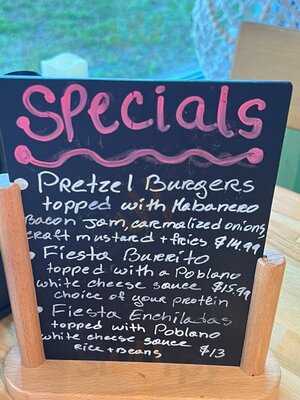 Specials
• Pretzel Burgers
topped with Habanero
Bacon Jam, carmalized onions
craft mustard + fries $14.99
• Fiesta Burrito
topped with a Poblano
white cheese sauce $15.99
choice of your protein
• Fiesta Enchiladas
topped with Poblano
white cheese sauce
Rice + Beans $13